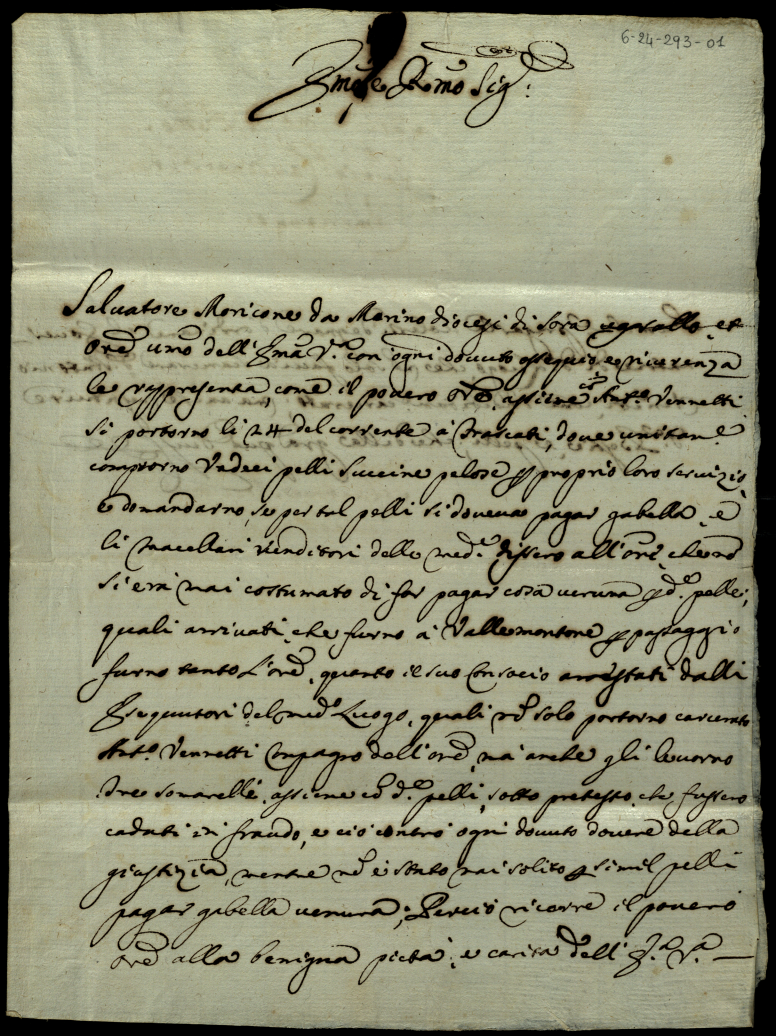 6-24-293-01
Em̃o e Rm̃o Sig.r
Salvatore Moricone da Morino diocesi di Sora vassallo, et
Ore umo dell'Em̃a V.a con ogni dovuto ossequio, e riverenza
le rappresenta, come il povero Ore, assieme con Ant.o Vennetti
si portorno li 24 del corrente à Frascati, dove unitam.e
comprorno Vndeci pelli Succine pelose p proprio loro servizio,
e domandarno, se per tal pelli si doveva pagar gabella, e
li macellari venditori delle med.e dissero all'Ore, che nõ
si era mai costumato di far pagar cosa veruna p d.e pelle;
quali arrivati, che furno à Vallemontone p passaggio
furno tanto l'Ore, quanto il suo Consocio arrestati dalli
Esequutori del med.o Luogo, quali nõ solo portorno carcerato
Ant.o Vennetti Compagno dell'Ore, mà anche gli levorno
due somarelle, assieme cõ d.e pelli, sotto pretesto, che fussero
caduti in fraudo, e ciò contro ogni dovuto dovere della
giustizia, mentre nõ è stato mai solito p simil pelli
pagar gabella veruna; Perciò ricorre il povero
Ore alla benigna pietà, e carità dell'E.a V.a